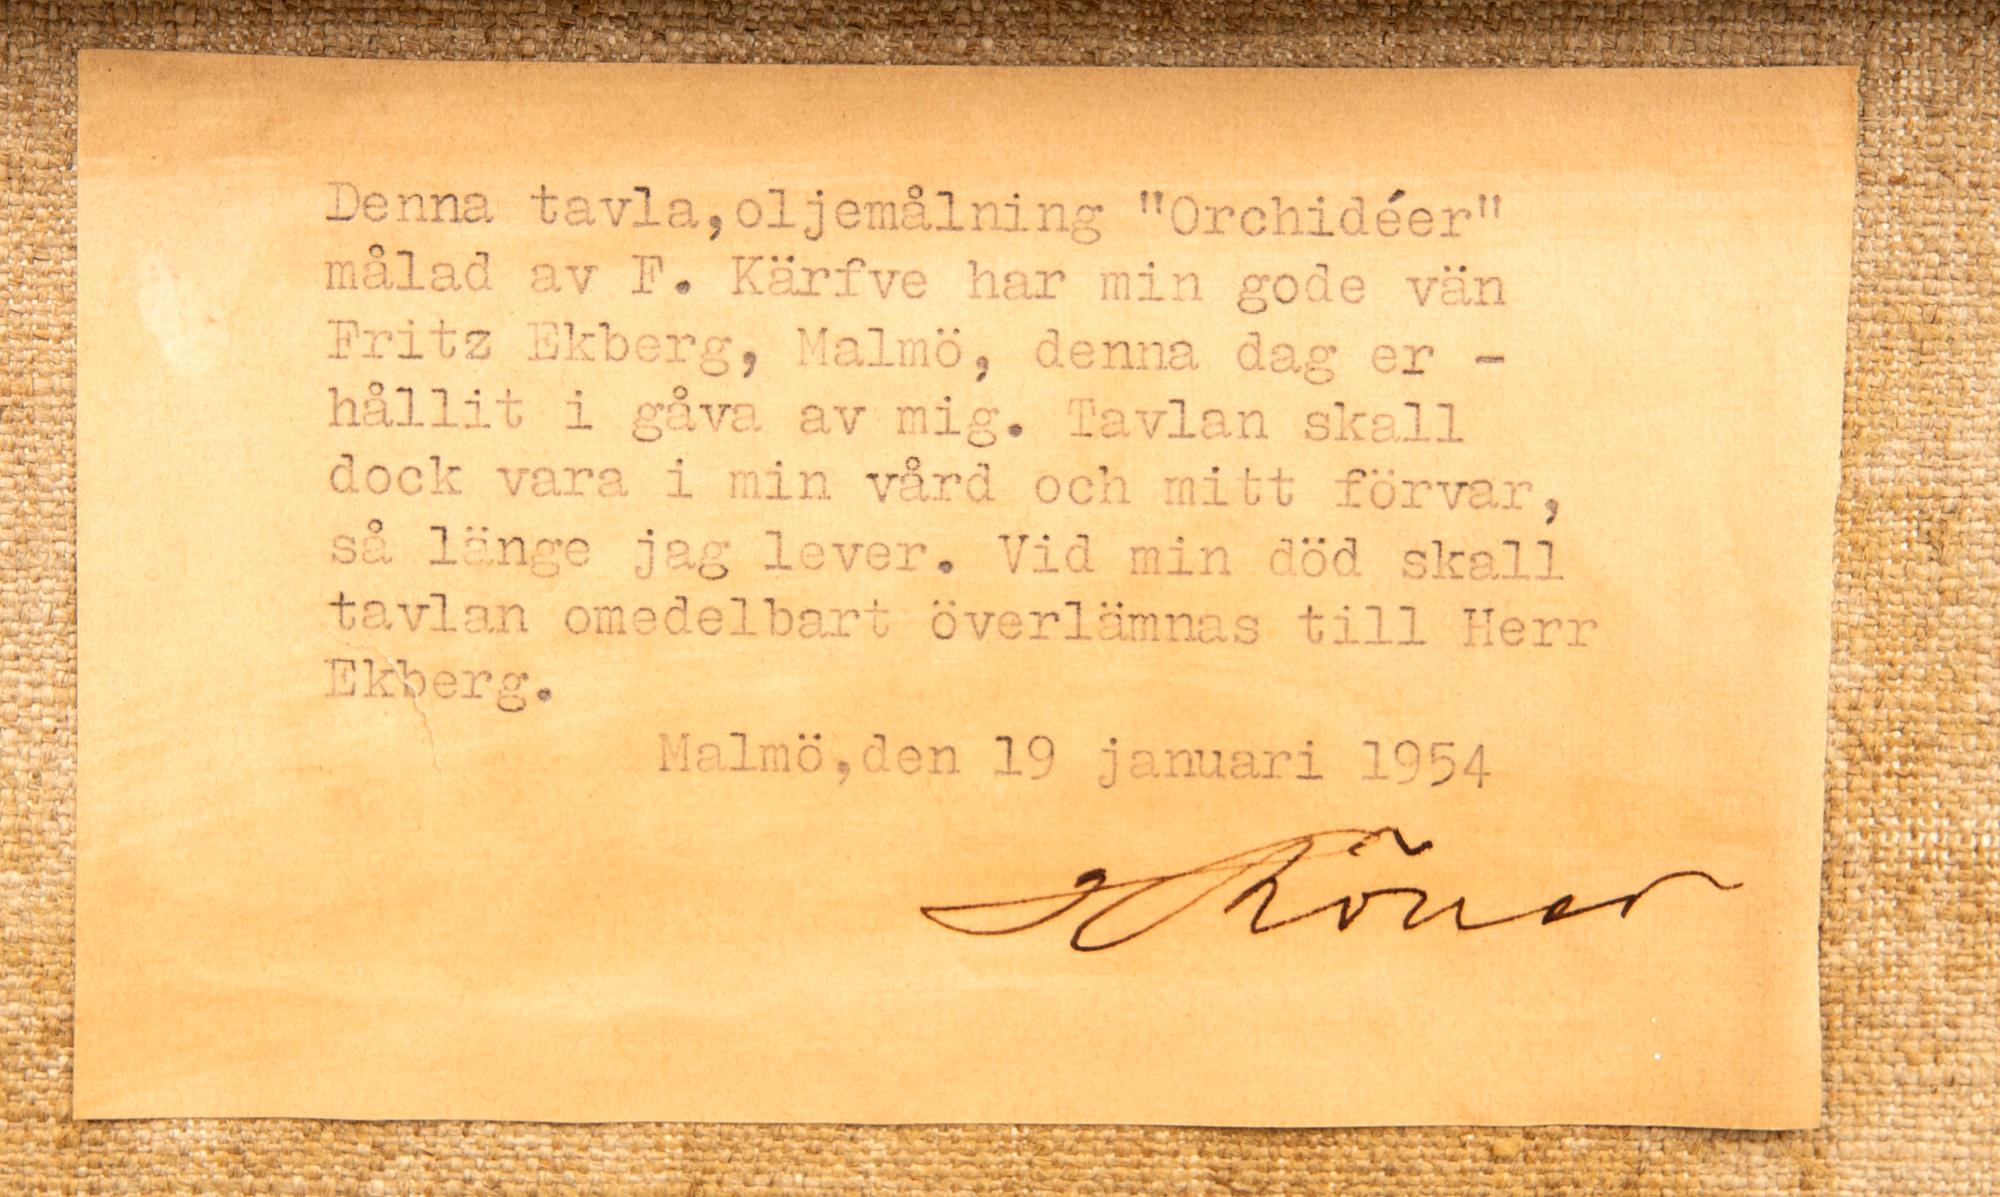 Denna tavla,oljemålning "Orchidéer"
målad av F. Kärfve har min gode vän
Fritz Ekberg, Malmö, denna dag er -
hållit i gåva av mig. Tavlan skall
dock vara i min vård och mitt förvar,
så länge jag lever. Vid min död skall
tavlan omedelbart överlämnas till Herr
Ekberg.
Malmö,den 19 januari 1954